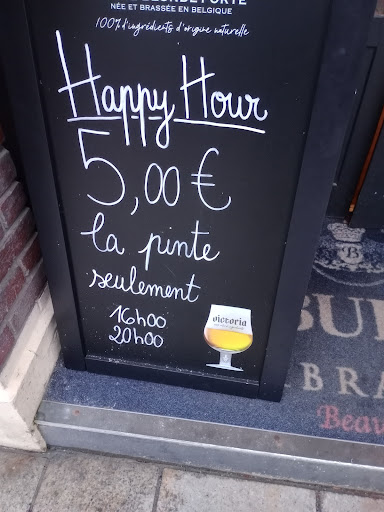 NÉE ET BRASSÉE EN BELGIQUE
100% d'ingrédients d'origine naturelle
Happy Hour
5,00 €
la pinte
seulement
16h00
20h00
victoria
BU
BRA
Beau